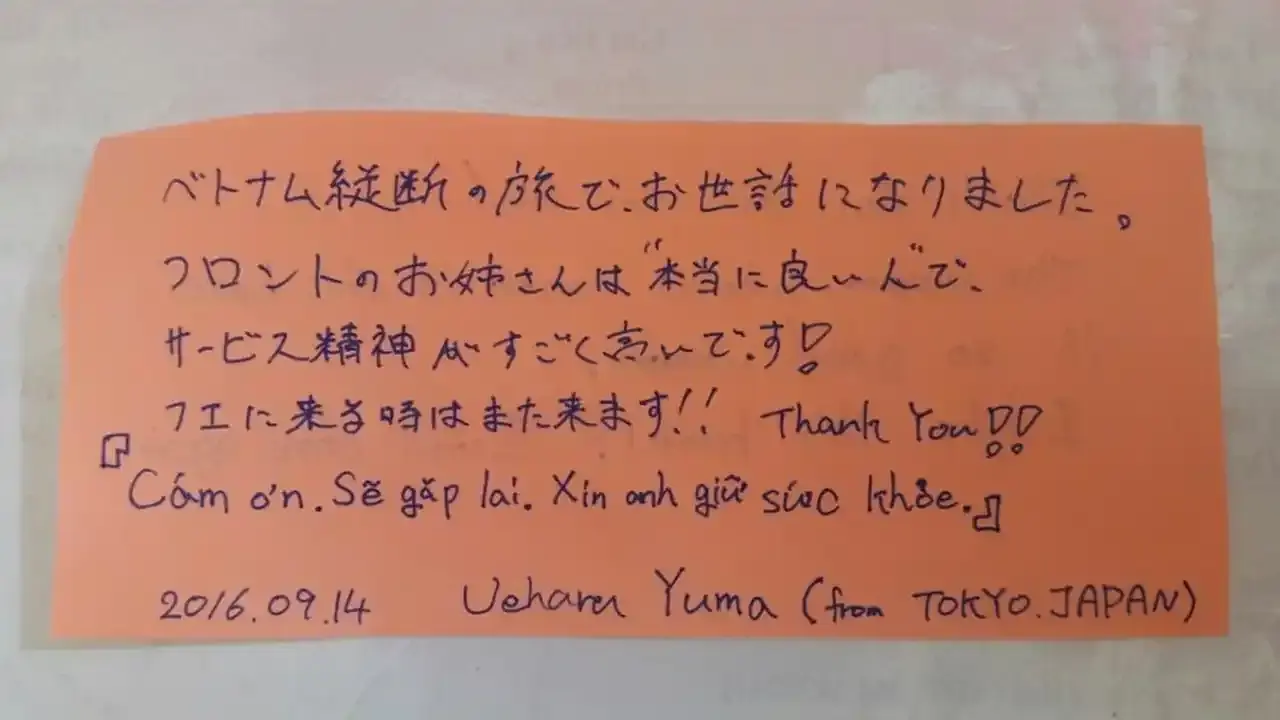 ベトナム縦断の旅で、お世話になりました。
フロントのお姉さんは"本当に良い人"で、
サービス精神がすごく高いです!
フエに来る時はまた来ます!! Thank You!!
『Cám ơn. Sẽ gặp lai. Xin anh giữ sức khỏe.』
2016.09.14 Uehara Yuma (from TOKYO.JAPAN)